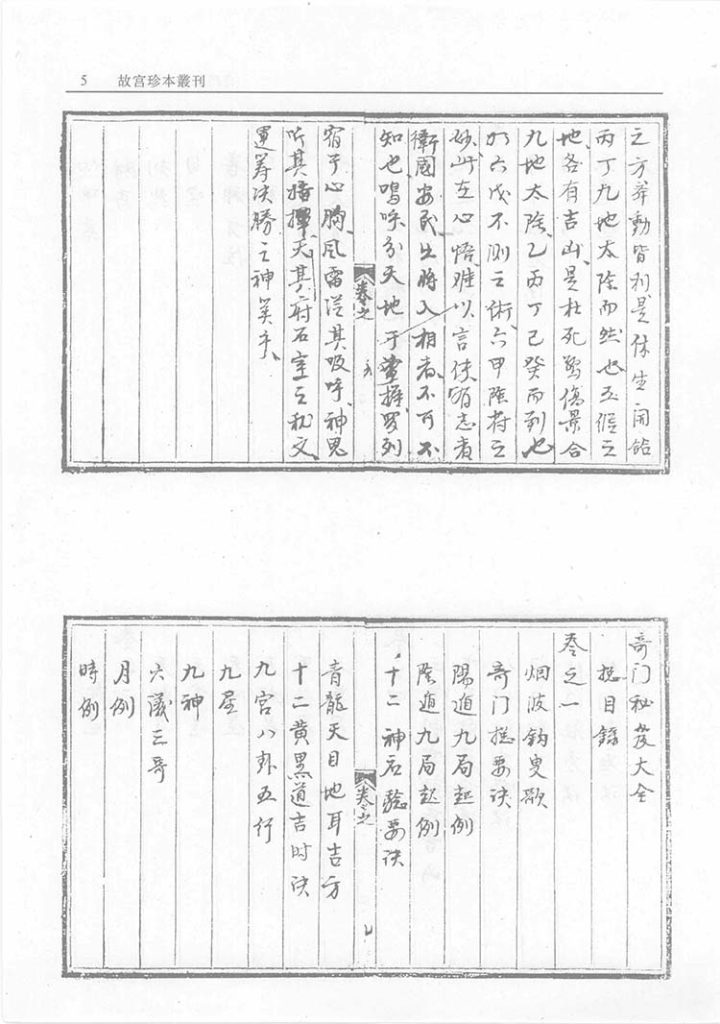 5 故宫珍本叢刊
之方举動皆利是休生開餄
丙丁九地太陰而然也玉假之
地各有吉凶是杜死驚傷景合
九地太陰乙丙丁己癸而到也
六戊不测之術六甲陰符之
妙此在心悟难以言使有志者
衛國安民出將入相者不可不
知也嗚呼分天地于掌握罗列
宿于心胸风雷從其吸呼神鬼
听其指揮天其府石室之秘文
運筹决勝之神美乎
卷之
六
奇门秘笈大全
揔目錄
卷之一
烟波钓叟歌
奇门揔要诀
陽遁九局起例
陰遁九局起例
十二神应验要诀
青龍天目地耳吉方
十二黄黑道吉时诀
九宫八卦五行
九星
九神
六儀三奇
月例
時例
卷之